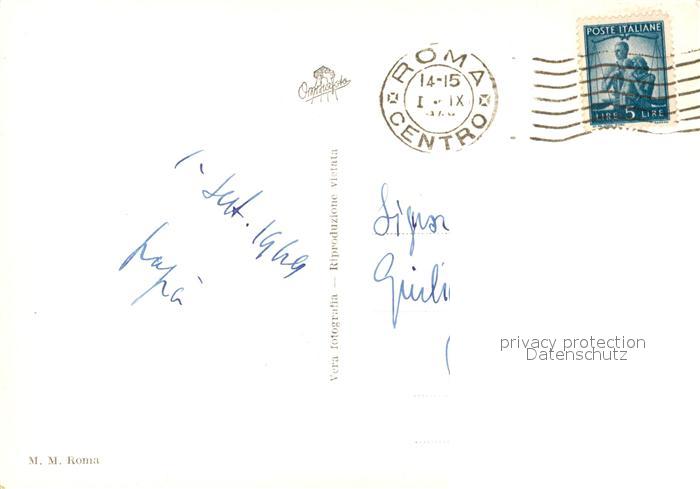 POSTE ITALIANE
LIRE 5 LIRE
ROMA
14-15
I IX
CENTRO
1 Set. 1949
papà
Vera fotografia — Riproduzione vietata
privacy protection
Datenschutz
M. M. Roma